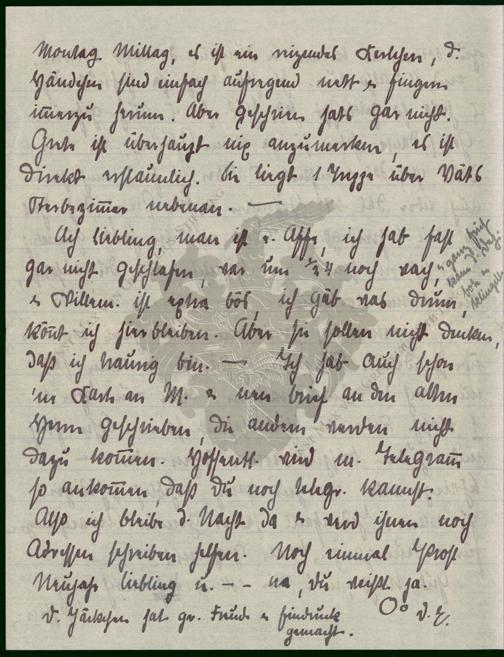 Montag Mittag, es ist ein reizendes Kerlchen, d.
Händchen sind einfach aufregend nett u fingern
immerzu herum. Aber geschrien hat's gar nicht.
Grete ist überhaupt nix anzumerken, es ist
direkt erstaunlich. Sie liegt 1 Treppe über Väts
Sterbezimmer nebenan. —
Ach Liebling, man ist e. Affe, ich hab fast
gar nicht geschlafen, war um ½4 noch wach,
u Willem. ist extra bös, ich gäb was drum,
könnt ich hierbleiben. Aber Sie sollen nicht denken,
daß ich traurig bin. — Ich hab auch schon
'ne Karte an M. u nen Brief an den alten
Herrn geschrieben, die andern werden nicht
dazu kommen. Hoffentl. wird m. Telegramm
so ankommen, daß Du noch telegr. kannst.
Also ich bleibe d. Nacht da u werd ihnen noch
Adressen schreiben helfen. Noch einmal Prost
Neujahr Liebling u. – – na, Du weißt ja.
D. Jäckchen hat gr. Freude u Eindruck
gemacht. D. E.